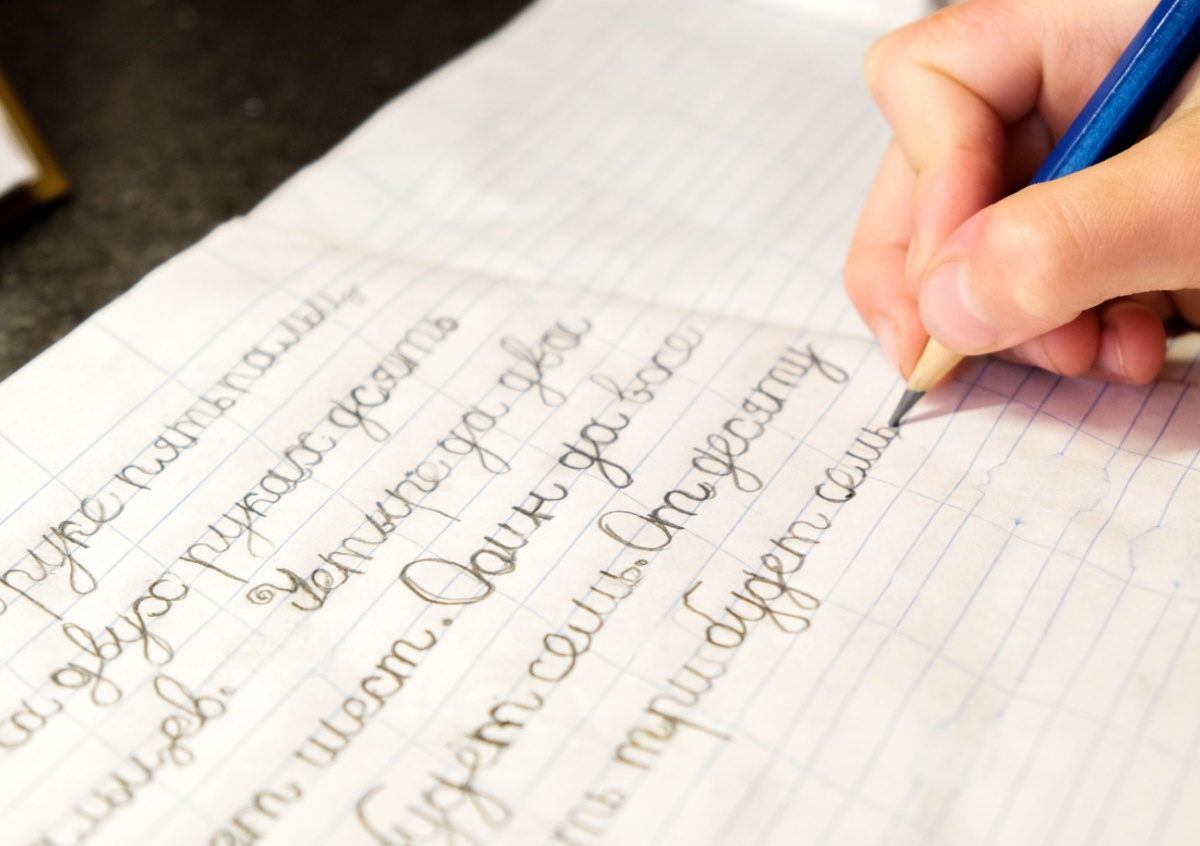 руке пять пальц
а двух руках десять
альцев. Четыре да два
ет шест. Один да восе
будет семь. От десяту
ть три будет семь